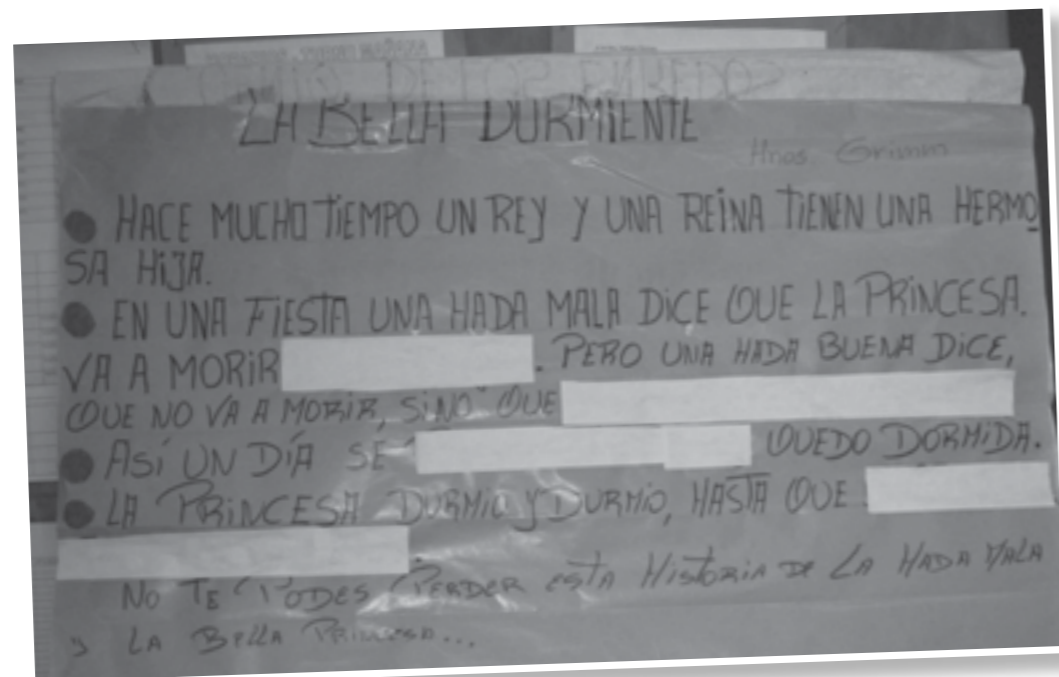 DE LOS ENREDOS
LA BELLA DURMIENTE
Hnos. Grimm
● HACE MUCHO TIEMPO UN REY Y UNA REINA TIENEN UNA HERMO
SA HIJA.
● EN UNA FIESTA UNA HADA MALA DICE QUE LA PRINCESA.
VA A MORIR . PERO UNA HADA BUENA DICE,
QUE NO VA A MORIR, SINO QUE
● ASÍ UN DÍA SE QUEDO DORMIDA.
● LA PRINCESA DURMIO Y DURMIO, HASTA QUE
NO TE PODES PERDER ESTA HISTORIA DE LA HADA MALA
Y LA BELLA PRINCESA...